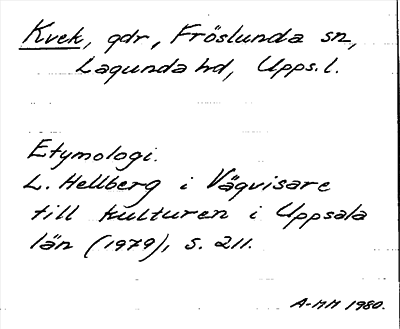 Kvek, gdr, Fröslunda sn,
Lagunda hd, Upps. l.
Etymologi.
L. Hellberg i Vägvisare
till kulturen i Uppsala
län (1979), s. 211.
A-MM 1980.